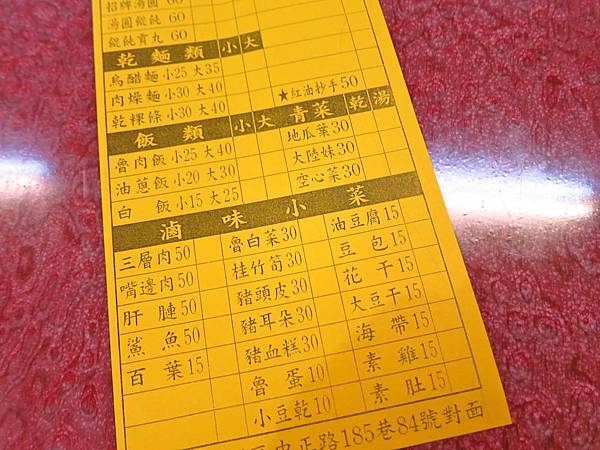 招牌湯圓 60
湯圓餛飩 60
餛飩貢丸 60
乾麵類 小 大
烏醋麵 小25 大35
肉燥麵 小30 大40
乾粿條 小30 大40
★紅油抄手50
飯類 小 大 青菜 乾 湯
魯肉飯 小25 大40 地瓜葉30
油蔥飯 小20 大30 大陸妹30
白飯 小15 大25 空心菜30
滷味小菜
三層肉50 魯白菜30 油豆腐15
嘴邊肉50 桂竹筍30 豆包15
肝腱50 豬頭皮30 花干15
鯊魚50 豬耳朵30 大豆干15
百葉15 豬血糕30 海帶15
魯蛋10 素雞15
小豆乾10 素肚15
中正路185巷84號對面